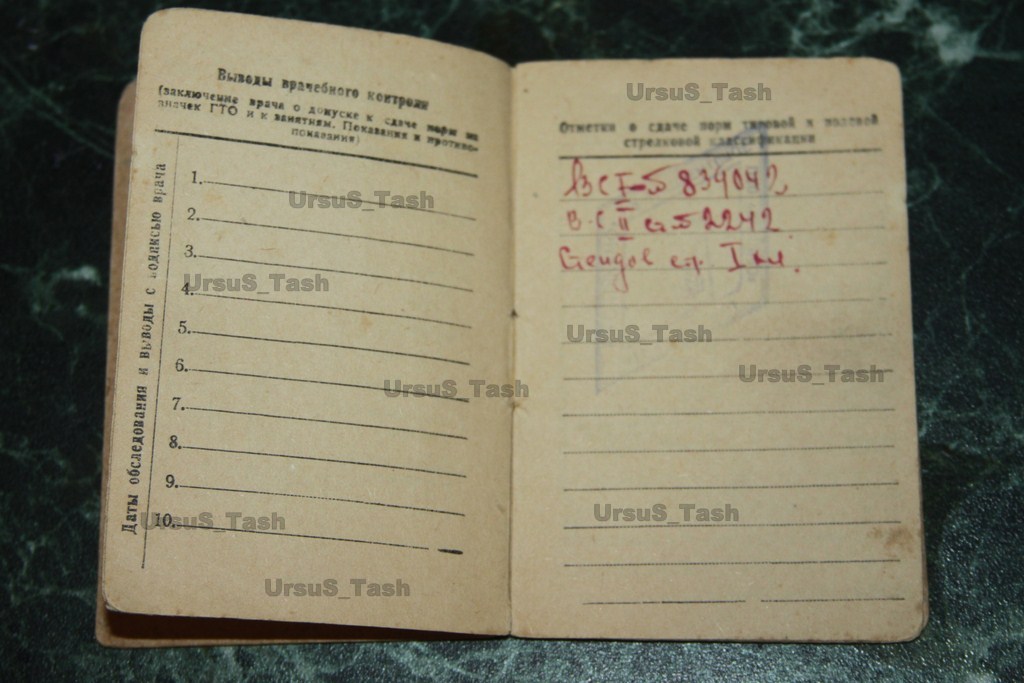 Выводы врачебного контроля
(заключение врача о допуске к сдаче норм на
значек ГТО и к занятиям. Показания и противо-
показания)
Даты обследования и выводы с подписью врача
1.
2.
3.
4.
5.
6.
7.
8.
9.
10.
Отметки о сдаче норм тировой и полевой
стрелковой классификации
ВС I - 5 834042
В-С II ст 5 2242
Стендов стр. I кл.
UrsuS_Tash
UrsuS_Tash
UrsuS_Tash
UrsuS_Tash
UrsuS_Tash
UrsuS_Tash
UrsuS_Tash
UrsuS_Tash
UrsuS_Tash